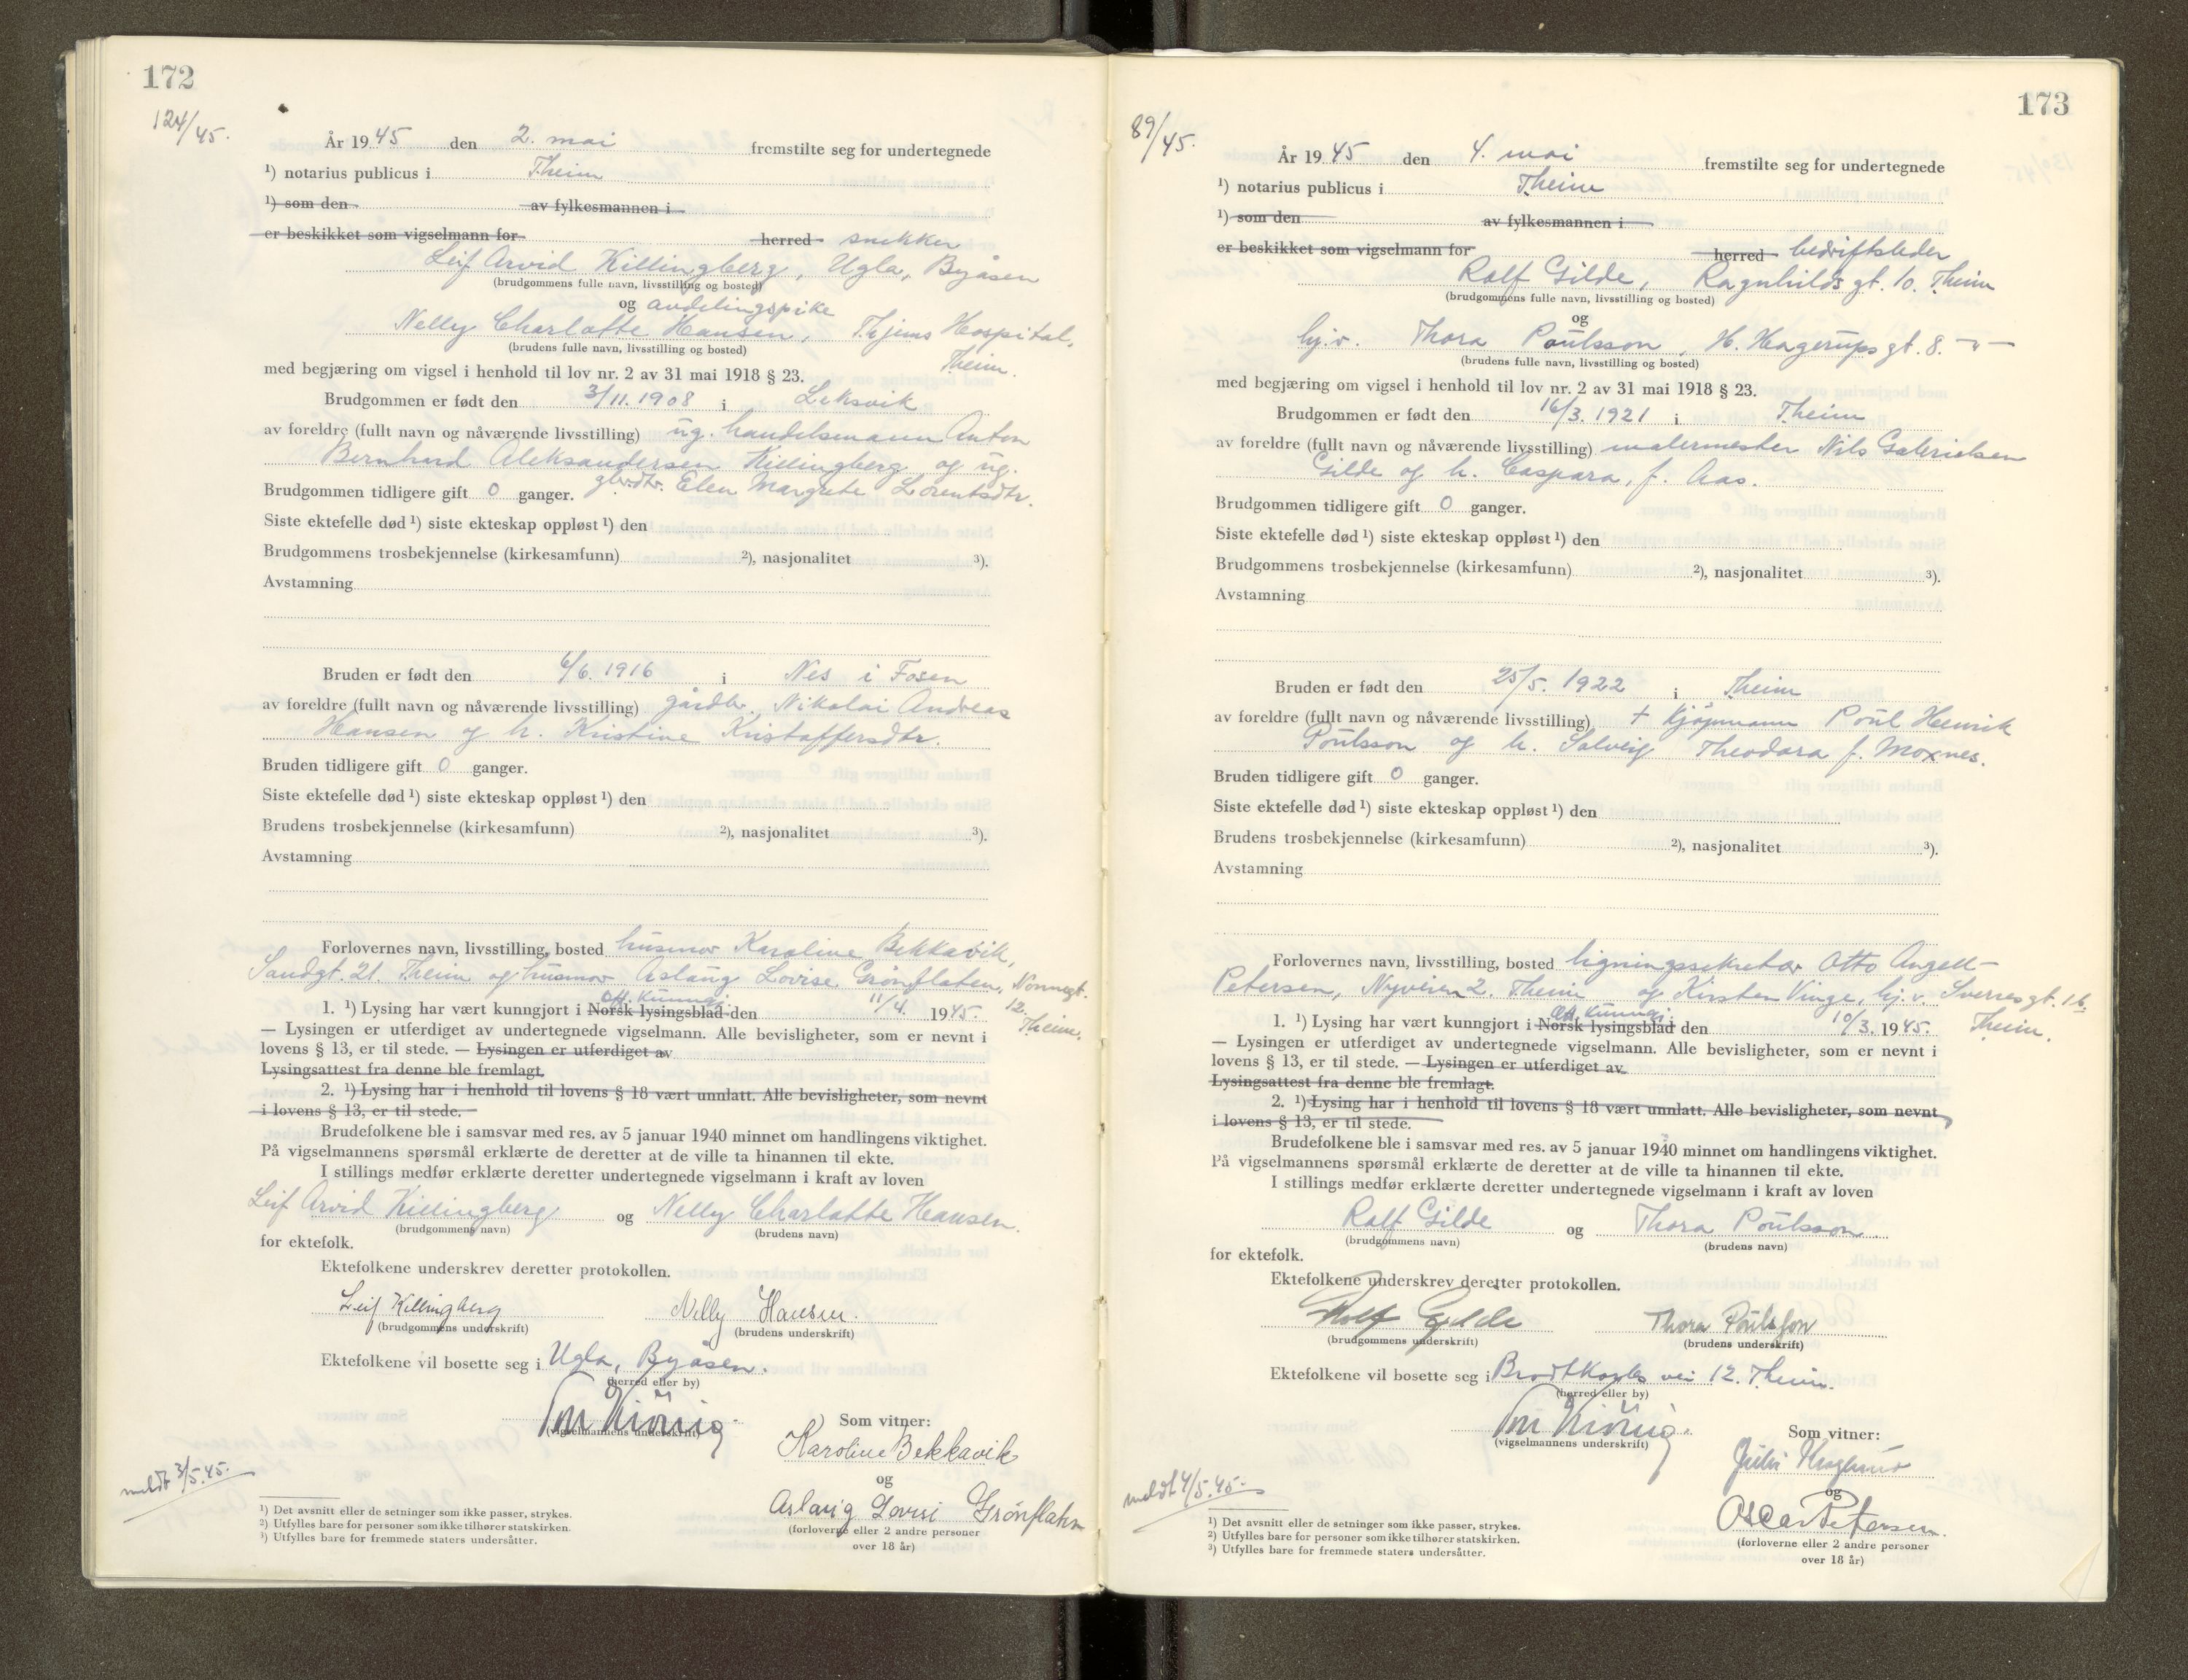 172
124/45.
År 1945 den 2. mai fremstilte seg for undertegnede
¹) notarius publicus i Theim
¹) som den av fylkesmannen i
er beskikket som vigselmann for herred snekker
Leif Arvid Killingberg, Ugla, Byåsen
(brudgommens fulle navn, livsstilling og bosted)
og avdelingspike
Nelly Charlotte Hansen, Thjems Hospital,
(brudens fulle navn, livsstilling og bosted)
Theim.
med begjæring om vigsel i henhold til lov nr. 2 av 31 mai 1918 § 23.
Brudgommen er født den 3/11. 1908 i Leksvik
av foreldre (fullt navn og nåværende livsstilling) ug. handelsmann Anton
Bernhard Aleksandersen Killingberg og ug.
Brudgommen tidligere gift 0 ganger. gbr.dtr. Elen Margrete Lorentsdtr.
Siste ektefelle død ¹) siste ekteskap oppløst ¹) den
Brudgommens trosbekjennelse (kirkesamfunn) ²), nasjonalitet ³).
Avstamning
Bruden er født den 6/6. 1916 i Nes i Fosen
av foreldre (fullt navn og nåværende livsstilling) gårdbr. Nikolai Andreas
Hansen og h. Kristine Kristoffersdtr.
Bruden tidligere gift 0 ganger.
Siste ektefelle død ¹) siste ekteskap oppløst ¹) den
Brudens trosbekjennelse (kirkesamfunn) ²), nasjonalitet ³).
Avstamning
Forlovernes navn, livsstilling, bosted husmor Karoline Bekkavik,
Sandgt. 21. Theim og husmor Aslaug Lovise Grønflaten, Nonnegt.
12.
Theim.
off. kunngj.
1. ¹) Lysing har vært kunngjort i Norsk lysingsblad den 11/4. 1945.
— Lysingen er utferdiget av undertegnede vigselmann. Alle bevisligheter, som er nevnt i
lovens § 13, er til stede. — Lysingen er utferdiget av
Lysingsattest fra denne ble fremlagt.
2. ¹) Lysing har i henhold til lovens § 18 vært unnlatt. Alle bevisligheter, som nevnt
i lovens § 13, er til stede.
Brudefolkene ble i samsvar med res. av 5 januar 1940 minnet om handlingens viktighet.
På vigselmannens spørsmål erklærte de deretter at de ville ta hinannen til ekte.
I stillings medfør erklærte deretter undertegnede vigselmann i kraft av loven
Leif Arvid Killingberg og Nelly Charlotte Hansen.
(brudgommens navn) (brudens navn)
for ektefolk.
Ektefolkene underskrev deretter protokollen.
Leif Killingberg Nelly Hansen.
(brudgommens underskrift) (brudens underskrift)
Ektefolkene vil bosette seg i Ugla, Byåsen.
(herred eller by)
(vigselmannens underskrift)
Som vitner:
Karoline Bekkavik
og
Aslaug Lovise Grønflaten
(forloverne eller 2 andre personer
over 18 år)
meldt 3/5.45.
¹) Det avsnitt eller de setninger som ikke passer, strykes.
²) Utfylles bare for personer som ikke tilhører statskirken.
³) Utfylles bare for fremmede staters undersåtter.
173
89/45.
År 1945 den 4. mai fremstilte seg for undertegnede
¹) notarius publicus i Theim
¹) som den av fylkesmannen i
er beskikket som vigselmann for herred bedriftsleder
Rolf Gilde, Ragnhilds gt. 10. Theim
(brudgommens fulle navn, livsstilling og bosted)
og
hj.v. Thora Poulsson, H. Hagerups gt. 8. —"—
(brudens fulle navn, livsstilling og bosted)
med begjæring om vigsel i henhold til lov nr. 2 av 31 mai 1918 § 23.
Brudgommen er født den 16/3. 1921 i Theim
av foreldre (fullt navn og nåværende livsstilling) malermester Nils
Gilde og h. Caspara, f. Aas.
Brudgommen tidligere gift 0 ganger.
Siste ektefelle død ¹) siste ekteskap oppløst ¹) den
Brudgommens trosbekjennelse (kirkesamfunn) ²), nasjonalitet ³).
Avstamning
Bruden er født den 25/5. 1922 i Theim
av foreldre (fullt navn og nåværende livsstilling) + kjøpmann Poul Henrik
Poulsson og h. Solveig Theodora f. Moxnes.
Bruden tidligere gift 0 ganger.
Siste ektefelle død ¹) siste ekteskap oppløst ¹) den
Brudens trosbekjennelse (kirkesamfunn) ²), nasjonalitet ³).
Avstamning
Forlovernes navn, livsstilling, bosted ligningssekretær Otto Angell-
Petersen, Nyveien 2. Theim og Kirsten Vinge, hj.v. Sverresgt. 16
Theim.
off. kunngj.
1. ¹) Lysing har vært kunngjort i Norsk lysingsblad den 10/3. 1945.
— Lysingen er utferdiget av undertegnede vigselmann. Alle bevisligheter, som er nevnt i
lovens § 13, er til stede. — Lysingen er utferdiget av
Lysingsattest fra denne ble fremlagt.
2. ¹) Lysing har i henhold til lovens § 18 vært unnlatt. Alle bevisligheter, som nevnt
i lovens § 13, er til stede.
Brudefolkene ble i samsvar med res. av 5 januar 1940 minnet om handlingens viktighet.
På vigselmannens spørsmål erklærte de deretter at de ville ta hinannen til ekte.
I stillings medfør erklærte deretter undertegnede vigselmann i kraft av loven
Rolf Gilde og Thora Poulsson
(brudgommens navn) (brudens navn)
for ektefolk.
Ektefolkene underskrev deretter protokollen.
Rolf Gilde Thora Poulsson
(brudgommens underskrift) (brudens underskrift)
Ektefolkene vil bosette seg i Brodtkorbs vei 12. Theim.
(herred eller by)
(vigselmannens underskrift)
Som vitner:
og
Oscar Petersen.
(forloverne eller 2 andre personer
over 18 år)
meldt 4/5.45.
¹) Det avsnitt eller de setninger som ikke passer, strykes.
²) Utfylles bare for personer som ikke tilhører statskirken.
³) Utfylles bare for fremmede staters undersåtter.